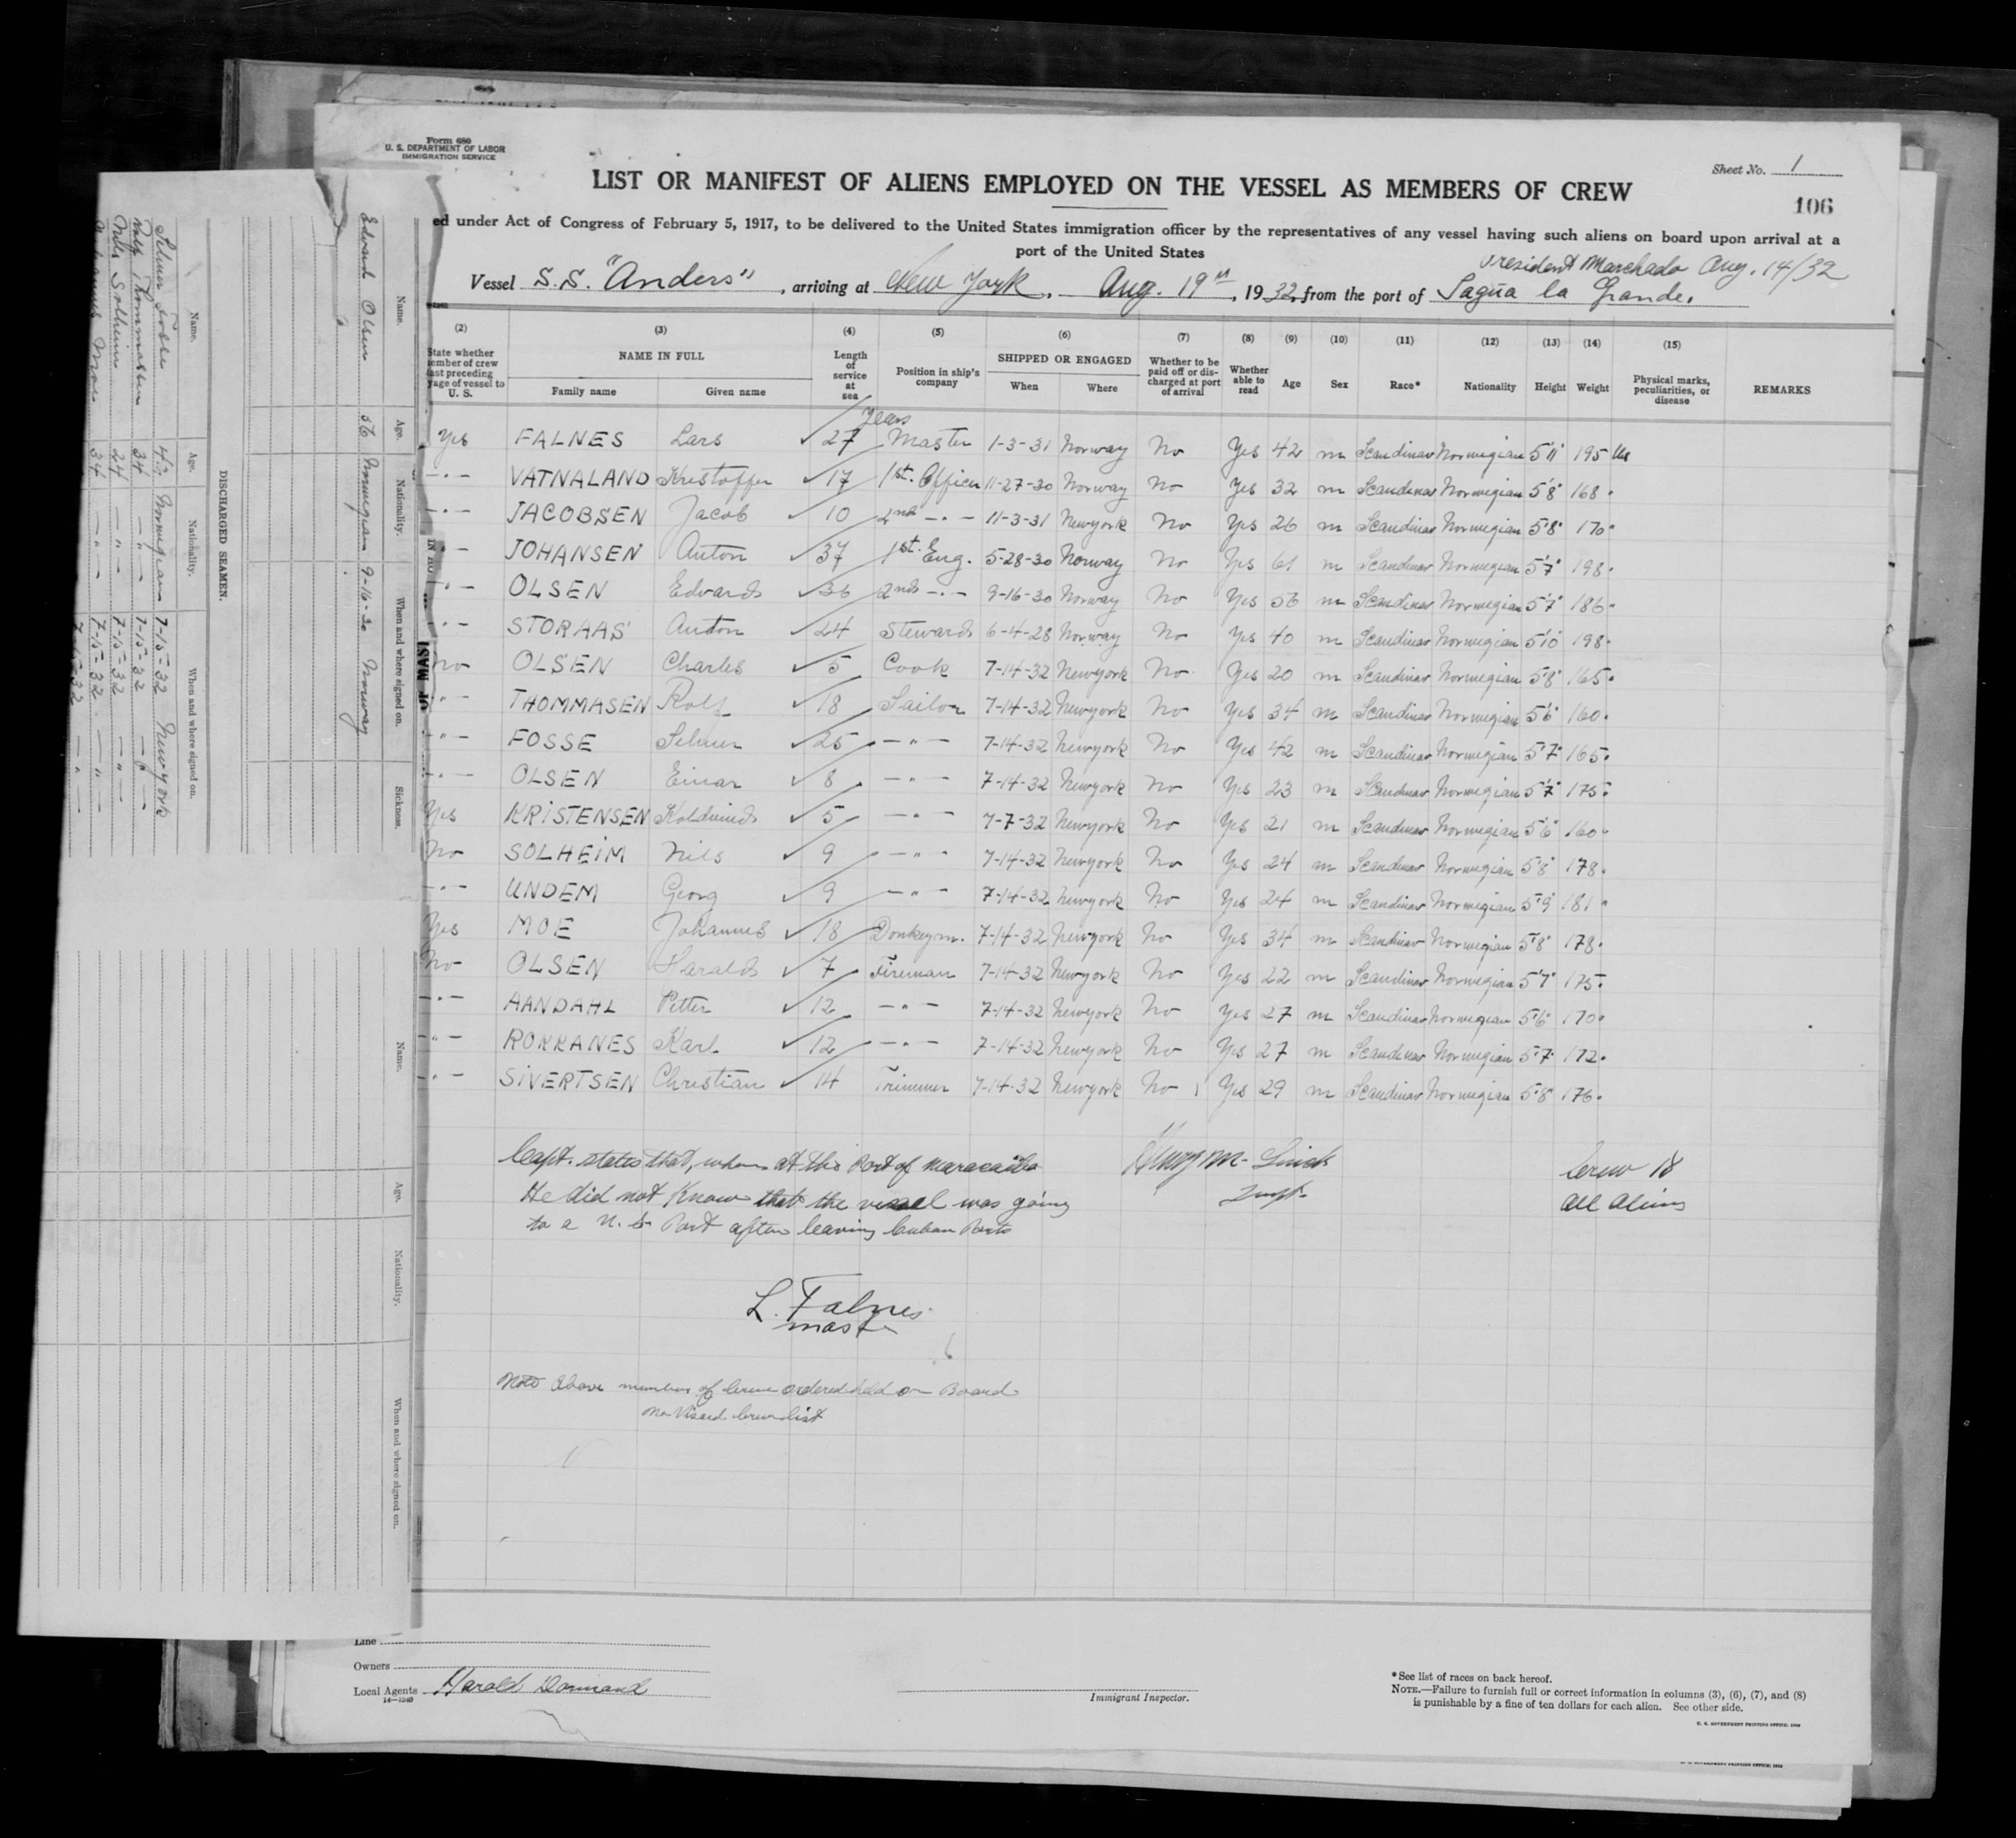 Form 680
U. S. DEPARTMENT OF LABOR
IMMIGRATION SERVICE
Sheet No. 1
LIST OR MANIFEST OF ALIENS EMPLOYED ON THE VESSEL AS MEMBERS OF CREW
106
ed under Act of Congress of February 5, 1917, to be delivered to the United States immigration officer by the representatives of any vessel having such aliens on board upon arrival at a
port of the United States
President Marchado Aug. 14/32
Vessel S.S. "Anders", arriving at New York, Aug. 19th, 1932, from the port of Sagua la Grande.
(2) (3) (4) (5) (6) (7) (8) (9) (10) (11) (12) (13) (14) (15)
State whether member of crew last preceding voyage of vessel to U. S. NAME IN FULL Family name Given name Length of service at sea Position in ship's company SHIPPED OR ENGAGED When Where Whether to be paid off or discharged at port of arrival Whether able to read Age Sex Race* Nationality Height Weight Physical marks, peculiarities, or disease REMARKS
Years
Yes FALNES Lars 27 Master 1-3-31 Norway No Yes 42 m Scandinav Norwegian 5'11" 195 lbs
-"- VATNALAND Kristoffer 17 1st. Officer 11-27-30 Norway No Yes 32 m Scandinav Norwegian 5'8" 168"
-"- JACOBSEN Jacob 10 2nd -"- 11-3-31 Newyork No Yes 26 m Scandinav Norwegian 5'8" 170"
-"- JOHANSEN Anton 37 1st. Eng. 5-28-30 Norway No Yes 61 m Scandinav Norwegian 5'7" 198"
-"- OLSEN Edvard 36 2nd -"- 9-16-30 Norway No Yes 56 m Scandinav Norwegian 5'7" 186"
-"- STORAAS Anton 24 Steward 6-4-28 Norway No Yes 40 m Scandinav Norwegian 5'10" 198"
No OLSEN Charles 5 Cook 7-14-32 Newyork No Yes 20 m Scandinav Norwegian 5'8" 165"
-"- THOMMASEN Rolf 18 Sailor 7-14-32 Newyork No Yes 34 m Scandinav Norwegian 5'6" 160"
-"- FOSSE Selmer 25 -"- 7-14-32 Newyork No Yes 42 m Scandinav Norwegian 5'7" 165"
-"- OLSEN Einar 8 -"- 7-14-32 Newyork No Yes 23 m Scandinav Norwegian 5'7" 175"
Yes KRISTENSEN 5 -"- 7-7-32 Newyork No Yes 21 m Scandinav Norwegian 5'6" 160"
No SOLHEIM Nils 9 -"- 7-14-32 Newyork No Yes 24 m Scandinav Norwegian 5'8" 178"
-"- UNDEM Georg 9 -"- 7-14-32 Newyork No Yes 24 m Scandinav Norwegian 5'9" 181"
Yes MOE Johannes 18 Donkeym. 7-14-32 Newyork No Yes 34 m Scandinav Norwegian 5'8" 178"
No OLSEN Harald 7 Fireman 7-14-32 Newyork No Yes 22 m Scandinav Norwegian 5'7" 175"
-"- AANDAHL Petter 12 -"- 7-14-32 Newyork No Yes 27 m Scandinav Norwegian 5'6" 170"
-"- ROKKANES Karl 12 -"- 7-14-32 Newyork No Yes 27 m Scandinav Norwegian 5'7" 172"
-"- SIVERTSEN Christian 14 Trimmer 7-14-32 Newyork No Yes 29 m Scandinav Norwegian 5'8" 176"
Capt. states that, when at the Port of Maracaibo
He did not Know that the vessel was going
to a U.S. Port after leaving Cuban Ports
Insp.
Crew 18
all aliens
L. Falnes
master
Note above members of crew ordered held on Board
no Visaed Crew list
Line
Owners
Local Agents Harold
14—1240
Immigrant Inspector.
*See list of races on back hereof.
NOTE.—Failure to furnish full or correct information in columns (3), (6), (7), and (8)
is punishable by a fine of ten dollars for each alien. See other side.
U. S. GOVERNMENT PRINTING OFFICE
Name. Age. Nationality. When and where signed on. Sickness.
Edvard Olsen 56 Norwegian 9-16-30 Norway
DISCHARGED SEAMEN.
Name. Age. Nationality. When and where signed on.
Selmer Fosse 42 Norwegian 7-15-32 Newyork
Rolf Thommassen 34 -"- 7-15-32 -"-
Nils Solheim 24 -"- 7-15-32 -"-
Johannes Moe 34 -"- 7-15-32 -"-
7-15-32 -"-
Name. Age. Nationality. When and where signed on.